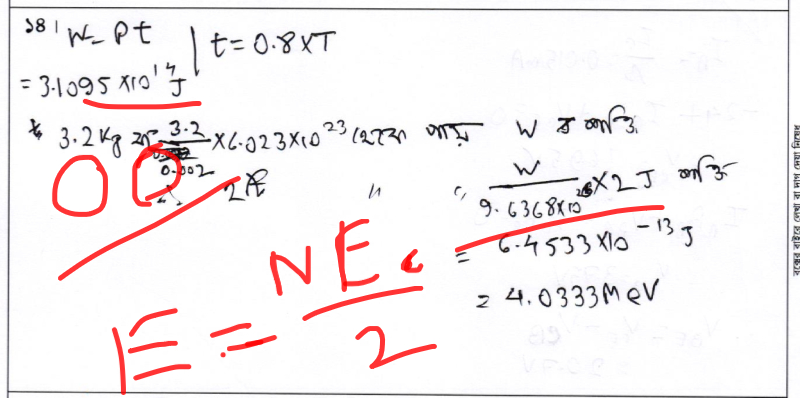 ১৪। W = Pt | t = 0.8×T
= 3.1095 ×10¹⁴ J
* 3.2 kg এ 3.2/0.002 ×6.023×10²³ থেকে পায় W র শক্তি
2 টি " " W/9.6368×10²⁶ ×2 J শক্তি
= 6.4533×10⁻¹³ J
= 4.0333 MeV
E = NE₀/2
বক্সের বাইরে লেখা বা দাগ দেয়া নিষেধ